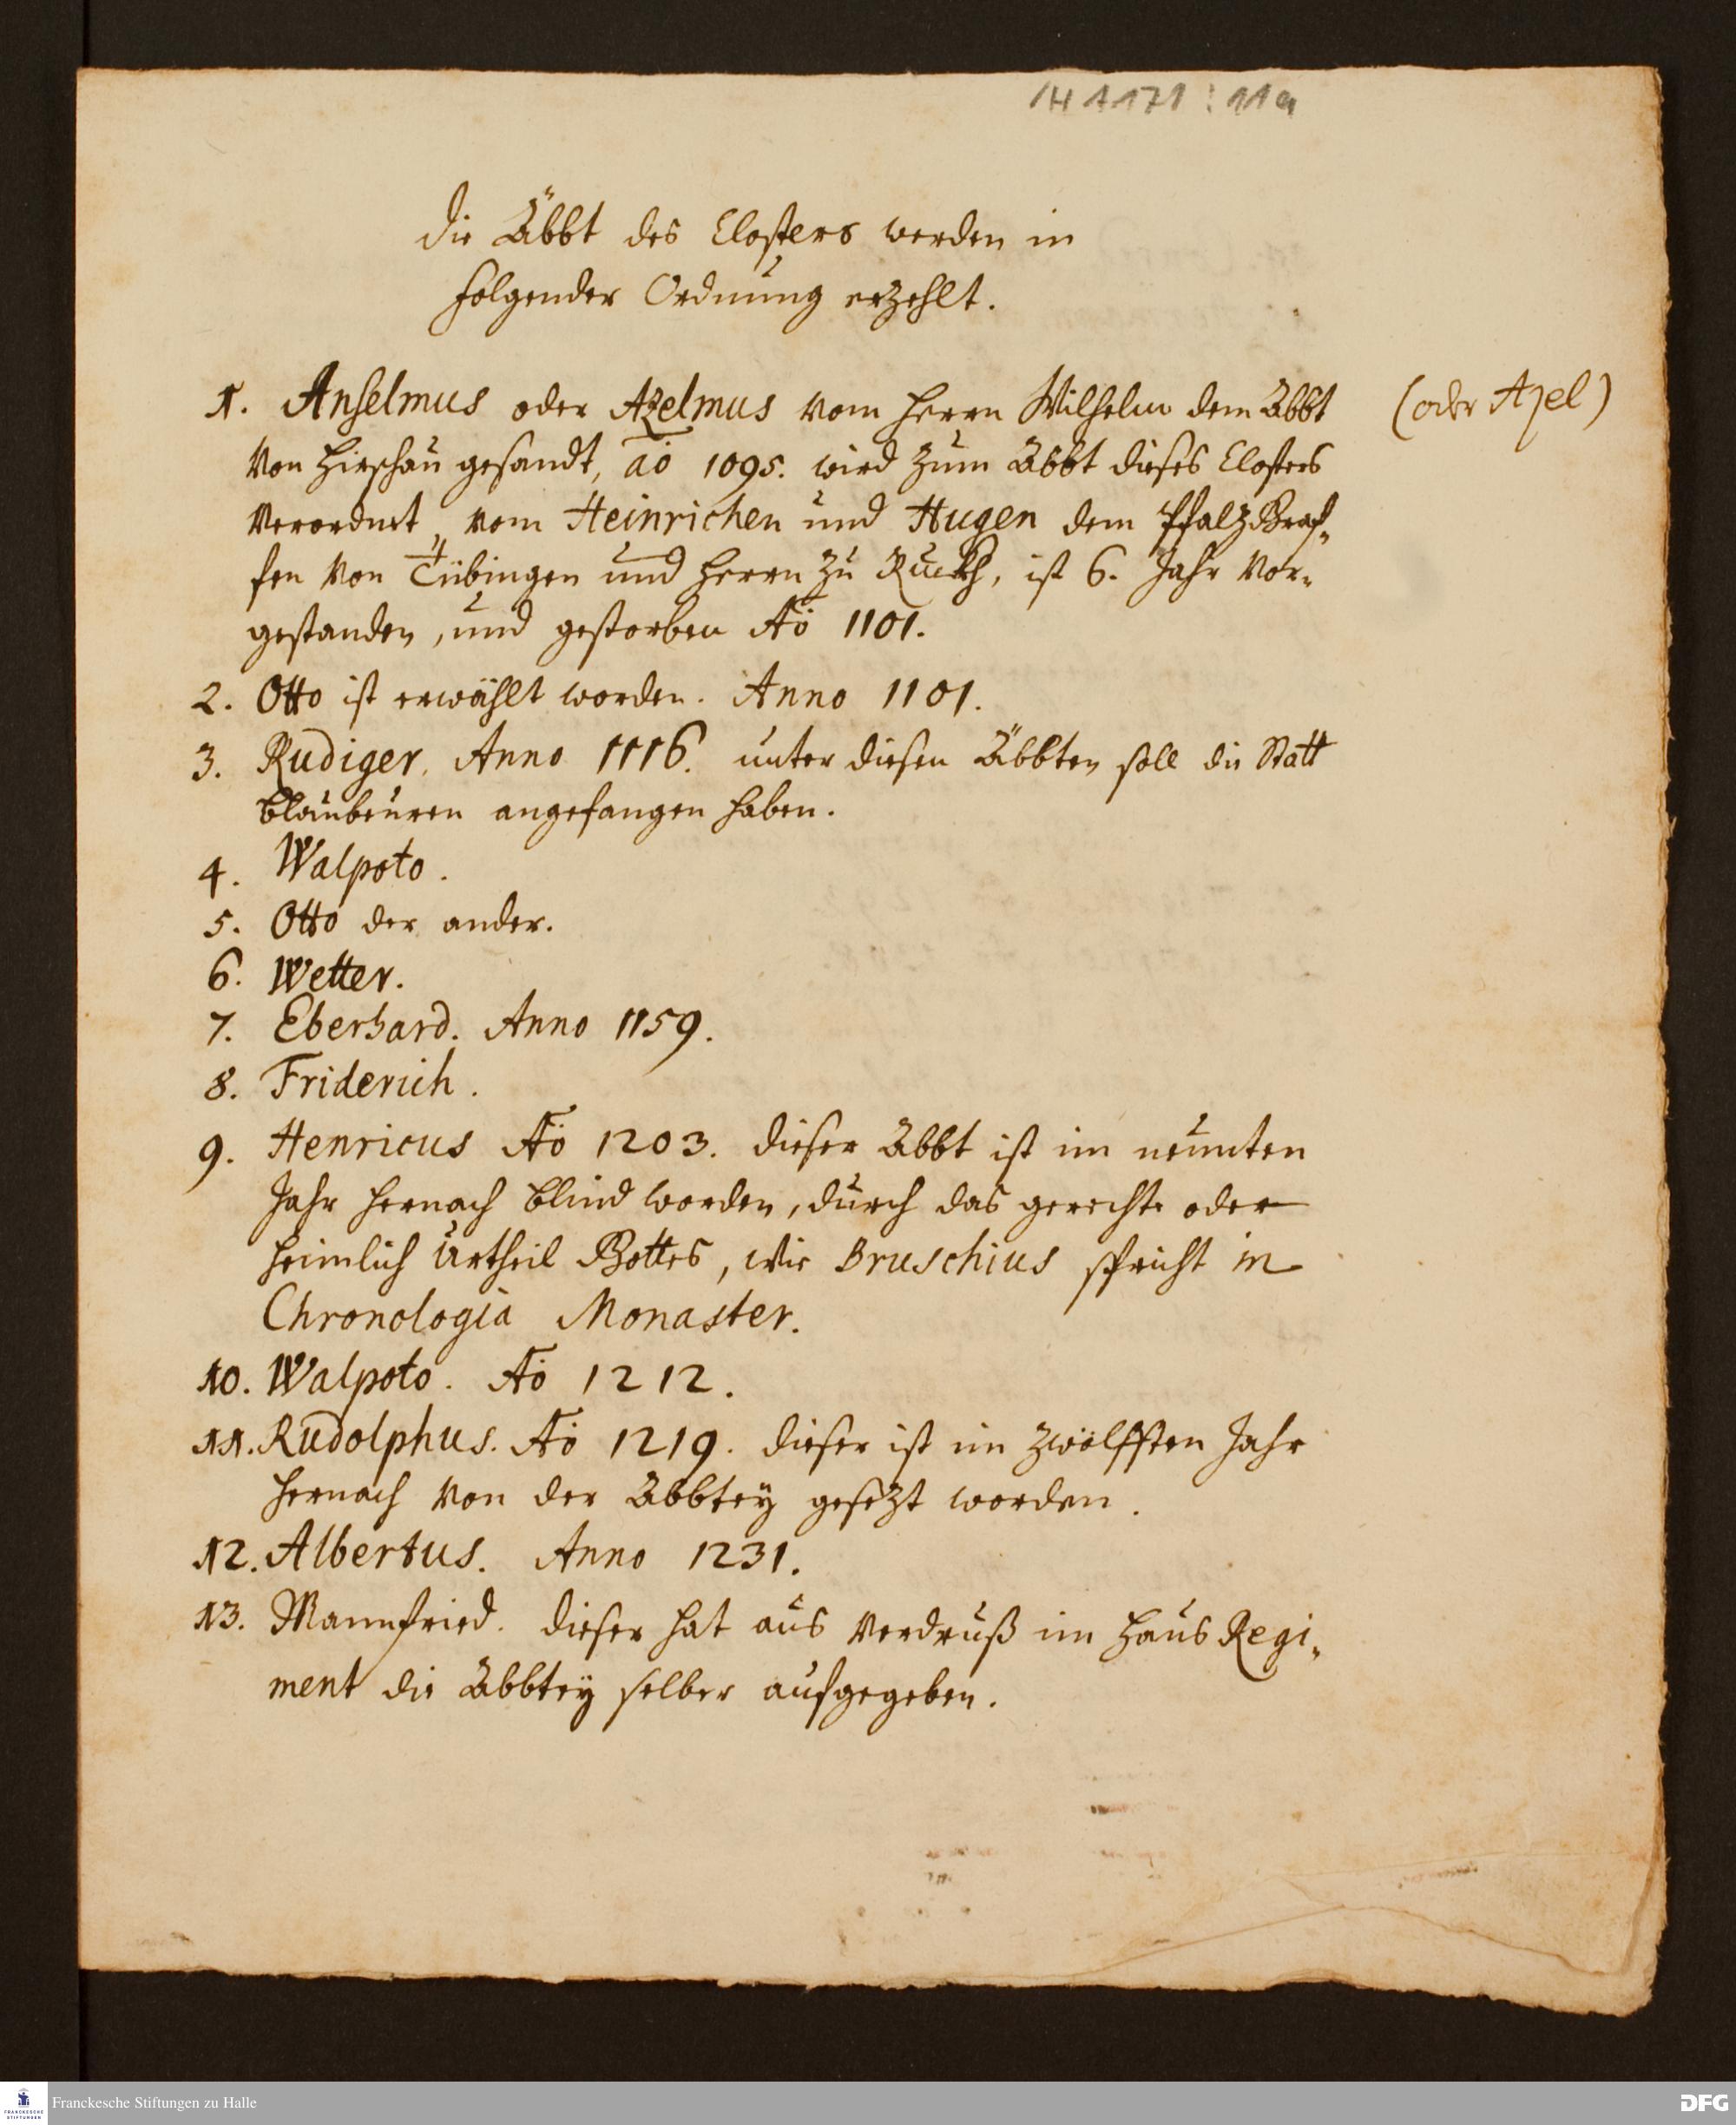 /H A 171 : 11a
Die Äbbt des Closters werden in
folgender Ordnung erzehlt.
1. Anselmus oder Azelmus vom Herrn Wilhelm dem Abbt (oder Azel)
von Hirschau gesandt, ao 1095. wird zum Abbt dieses Closters
verordnet, vom Heinrichen und Hugen dem PfalzGraf-
fen von Tübingen und Herrn zu Ruckh, ist 6. Jahr vor-
gestanden, und gestorben Ao 1101.
2. Otto ist erwählt worden. Anno 1101.
3. Rudiger. Anno 1116. unter diesen Äbbten soll die Statt
Blaubeuren angefangen haben.
4. Walpoto.
5. Otto der ander.
6. Wetter.
7. Eberhard. Anno 1159.
8. Friderich.
9. Henricus Ao 1203. Dieser Abbt ist im neunten
Jahr hernach blind worden, durch das gerechte oder
heimlich Urtheil Gottes, wie Bruschius spricht in
Chronologia Monaster.
10. Walpoto. Ao 1212.
11. Rudolphus. Ao 1219. Dieser ist im zwölfften Jahr
hernach von der Abbtey gesezt worden.
12. Albertus. Anno 1231.
13. Mannfried. Dieser hat aus Verdruß im Haus Regi-
ment die Abbtey selber aufgegeben.
FRANCKESCHE STIFTUNGEN
Franckesche Stiftungen zu Halle
DFG